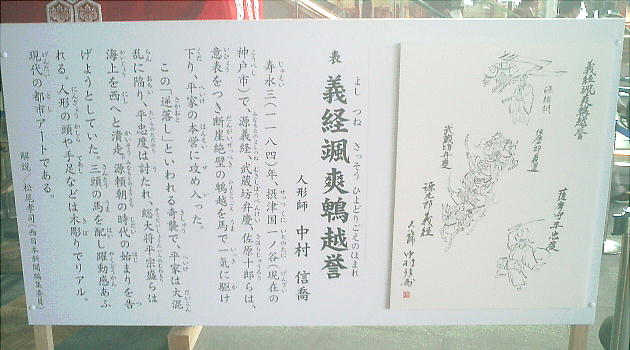 表 義経颯爽鵯越誉
よし つね さっそう ひよどりごえのほまれ
人形師 中村 信喬
寿永三(一一八四)年、摂津国一ノ谷(現在の
神戸市)で、源義経、武蔵坊弁慶、佐原十郎らは、
意表をつき断崖絶壁の鵯越を馬で一気に駆け
下り、平家の本営に攻め入った。
この「逆落し」といわれる奇襲で、平家は大混
乱に陥り、平忠度は討たれ、総大将平宗盛らは
海上を西へと潰走。源頼朝の時代の始まりを告
げようとしていた。三頭の馬を配し躍動感あふ
れる。人形の頭や手足などは木彫りでリアル。
現代の都市アートである。
解説/松尾孝司(西日本新聞編集委員)
義経颯爽鵯越誉
武蔵坊弁慶
源九郎義経
薩摩守平忠度
人形師 中村信喬